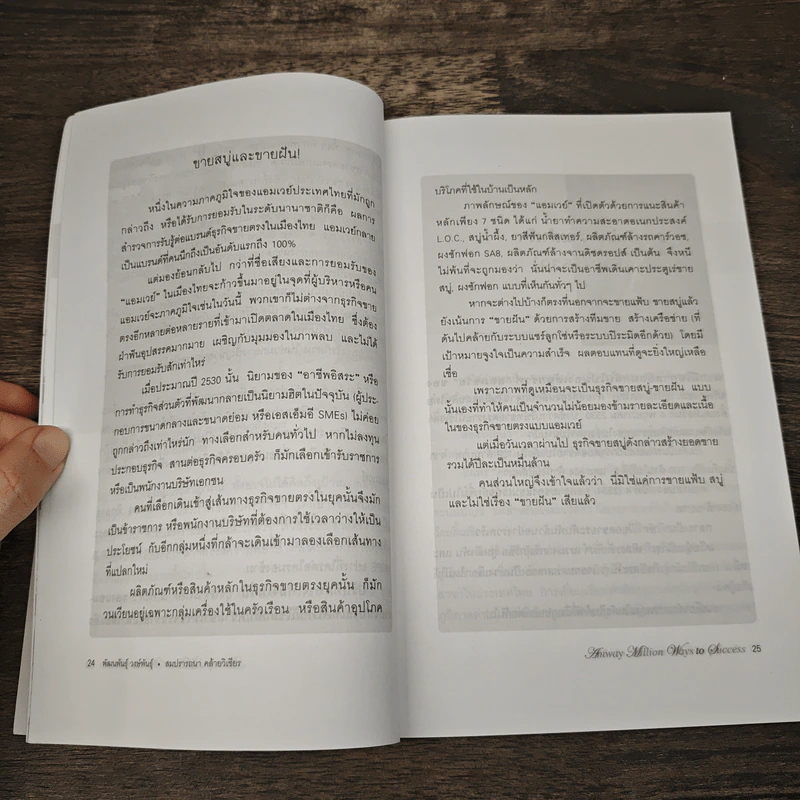 ขายสบู่และขายฝัน!
หนึ่งในความภาคภูมิใจของแอมเวย์ประเทศไทยที่มักถูก
กล่าวถึง หรือได้รับการยอมรับในระดับนานาชาติก็คือ ผลการ
สำรวจการรับรู้ต่อแบรนด์ธุรกิจขายตรงในเมืองไทย แอมเวย์กลาย
เป็นแบรนด์ที่คนนึกถึงเป็นอันดับแรกถึง 100%
แต่มองย้อนกลับไป กว่าที่ชื่อเสียงและการยอมรับของ
"แอมเวย์" ในเมืองไทยจะก้าวขึ้นมาอยู่ในจุดที่ผู้บริหารหรือคน
แอมเวย์จะภาคภูมิใจเช่นในวันนี้ พวกเขาก็ไม่ต่างจากธุรกิจขาย
ตรงอีกหลายต่อหลายรายที่เข้ามาเปิดตลาดในเมืองไทย ซึ่งต้อง
ฝ่าฟันอุปสรรคมากมาย เผชิญกับมุมมองในภาพลบ และไม่ได้
รับการยอมรับสักเท่าไหร่
เมื่อประมาณปี 2530 นั้น นิยามของ "อาชีพอิสระ" หรือ
การทำธุรกิจส่วนตัวที่พัฒนากลายเป็นนิยามฮิตในปัจจุบัน (ผู้ประ-
กอบการขนาดกลางและขนาดย่อม หรือเอสเอ็มอี SMEs) ไม่ค่อย
ถูกกล่าวถึงเท่าไหร่นัก ทางเลือกสำหรับคนทั่วไป หากไม่ลงทุน
ประกอบธุรกิจ สานต่อธุรกิจครอบครัว ก็มักเลือกเข้ารับราชการ
หรือเป็นพนักงานบริษัทเอกชน
คนที่เลือกเดินเข้าสู่เส้นทางธุรกิจขายตรงในยุคนั้นจึงมัก
เป็นข้าราชการ หรือพนักงานบริษัทที่ต้องการใช้เวลาว่างให้เป็น
ประโยชน์ กับอีกกลุ่มหนึ่งที่กล้าจะเดินเข้ามาลองเลือกเส้นทาง
ที่แปลกใหม่
ผลิตภัณฑ์หรือสินค้าหลักในธุรกิจขายตรงยุคนั้น ก็มัก
วนเวียนอยู่เฉพาะกลุ่มเครื่องใช้ในครัวเรือน หรือสินค้าอุปโภค
24 พัฒนพันธุ์ วงษ์พันธุ์ • สมปรารถนา คล้ายวิเชียร
บริโภคที่ใช้ในบ้านเป็นหลัก
ภาพลักษณ์ของ "แอมเวย์" ที่เปิดตัวด้วยการแนะสินค้า
หลักเพียง 7 ชนิด ได้แก่ น้ำยาทำความสะอาดอเนกประสงค์
L.O.C., สบู่น้ำผึ้ง, ยาสีฟันกลิสเทอร์, ผลิตภัณฑ์ล้างรถคาร์วอช,
ผงซักฟอก SA8, ผลิตภัณฑ์ล้างจานดิชดรอปส์ เป็นต้น จึงหนี
ไม่พ้นที่จะถูกมองว่า นั่นน่าจะเป็นอาชีพเดินเคาะประตูเร่ขาย
สบู่, ผงซักฟอก แบบที่เห็นกันทั่วๆ ไป
หากจะต่างไปบ้างก็ตรงที่นอกจากจะขายแฟ้บ ขายสบู่แล้ว
ยังเน้นการ "ขายฝัน" ด้วยการสร้างทีมขาย สร้างเครือข่าย (ที่
ดันไปคล้ายกับระบบแชร์ลูกโซ่หรือระบบปิระมิดอีกด้วย) โดยมี
เป้าหมายจูงใจเป็นความสำเร็จ ผลตอบแทนที่ดูจะยิ่งใหญ่เหลือ
เชื่อ
เพราะภาพที่ดูเหมือนจะเป็นธุรกิจขายสบู่-ขายฝัน แบบ
นั้นเองที่ทำให้คนเป็นจำนวนไม่น้อยมองข้ามรายละเอียดและเนื้อ
ในของธุรกิจขายตรงแบบแอมเวย์
แต่เมื่อวันเวลาผ่านไป ธุรกิจขายสบู่ดังกล่าวสร้างยอดขาย
รวมได้ปีละเป็นหมื่นล้าน
คนส่วนใหญ่จึงเข้าใจแล้วว่า นี่มิใช่แค่การขายแฟ้บ สบู่
และไม่ใช่เรื่อง "ขายฝัน" เสียแล้ว
Amway Million Ways to Success 25